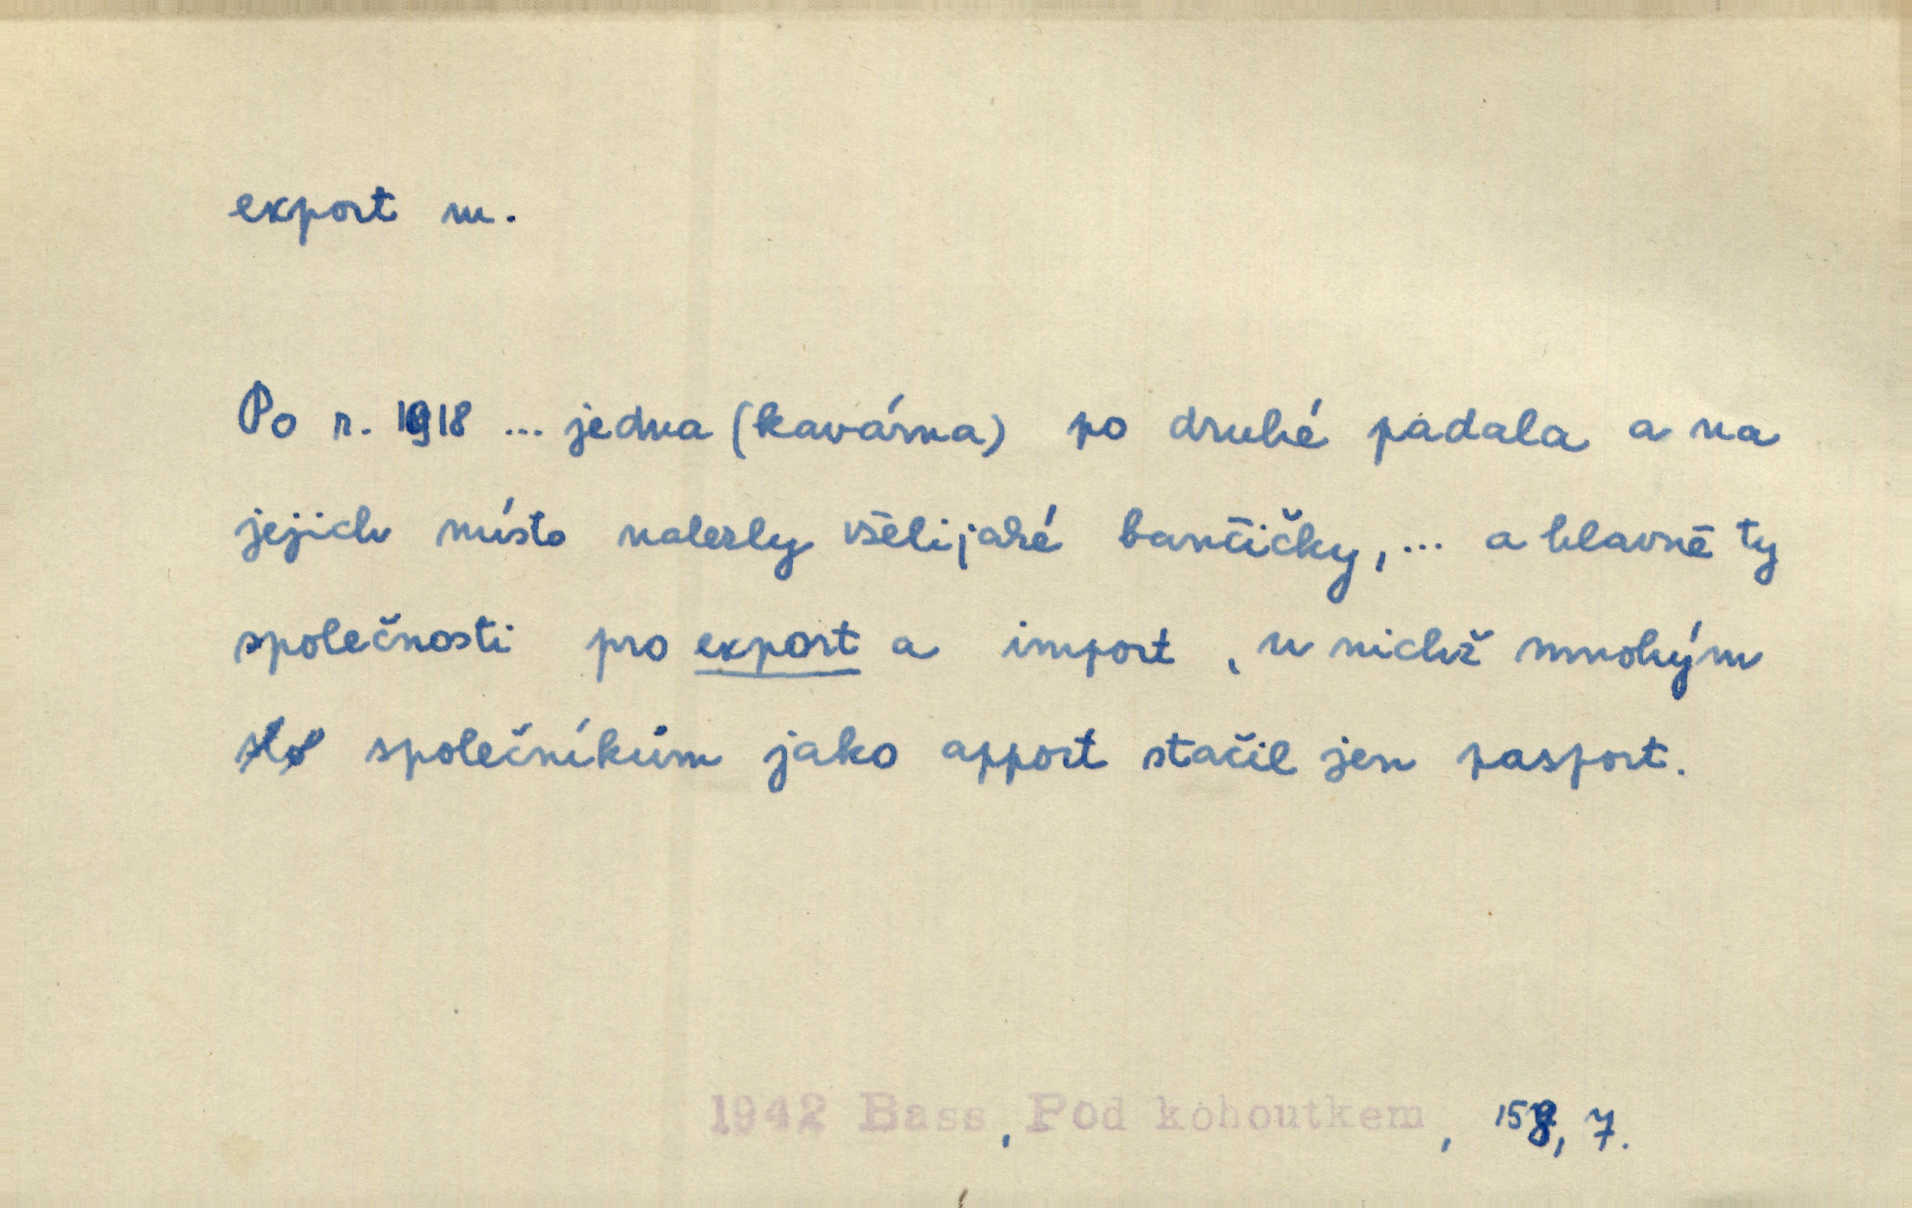 export m.
Po r. 1918 ... jedna (kavárna) po druhé padala a na
jejich místo nalezly všelijaké bančičky, ... a hlavně ty
společnosti pro export a import, u nichž mnohým
společníkům jako apport stačil jen pasport.
1942 Bass, Pod kohoutkem, 158, 7.